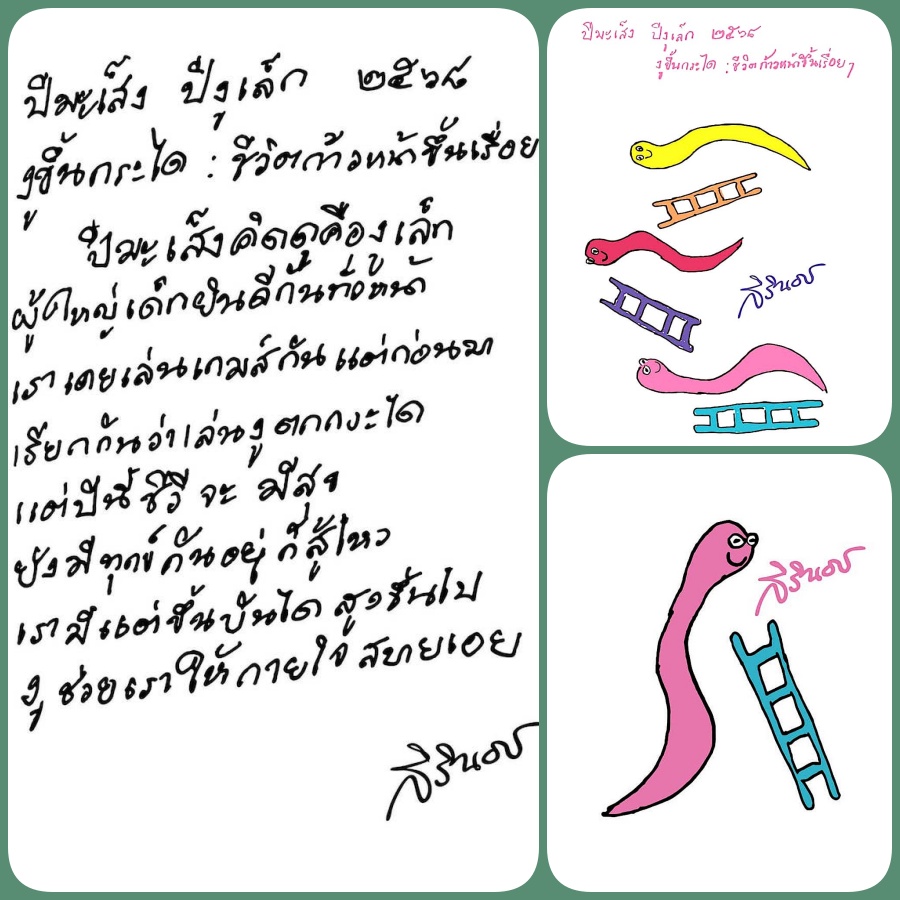 ปีมะเส็ง ปีงูเล็ก ๒๕๖๘
งูขึ้นกระได : ชีวิตก้าวหน้าขึ้นเรื่อย
ปีมะเส็งคิดดูคืองูเล็ก
ผู้ใหญ่เด็กยินดีกันทั่วหน้า
เราเคยเล่นเกมส์กันแต่ก่อนมา
เรียกกันว่าเล่นงูตกกระได
แต่ปีนี้ชีวี จะ มีสุข
ยังมีทุกข์กันอยู่ ก็สู้ไหว
เรามีแต่ขึ้นบันได สูงขึ้นไป
งู ช่วยเราให้กายใจ สบายเอย
สิรินธร
ปีมะเส็ง ปีงูเล็ก ๒๕๖๘
งูขึ้นกระได : ชีวิตก้าวหน้าขึ้นเรื่อยๆ
สิรินธร
สิรินธร